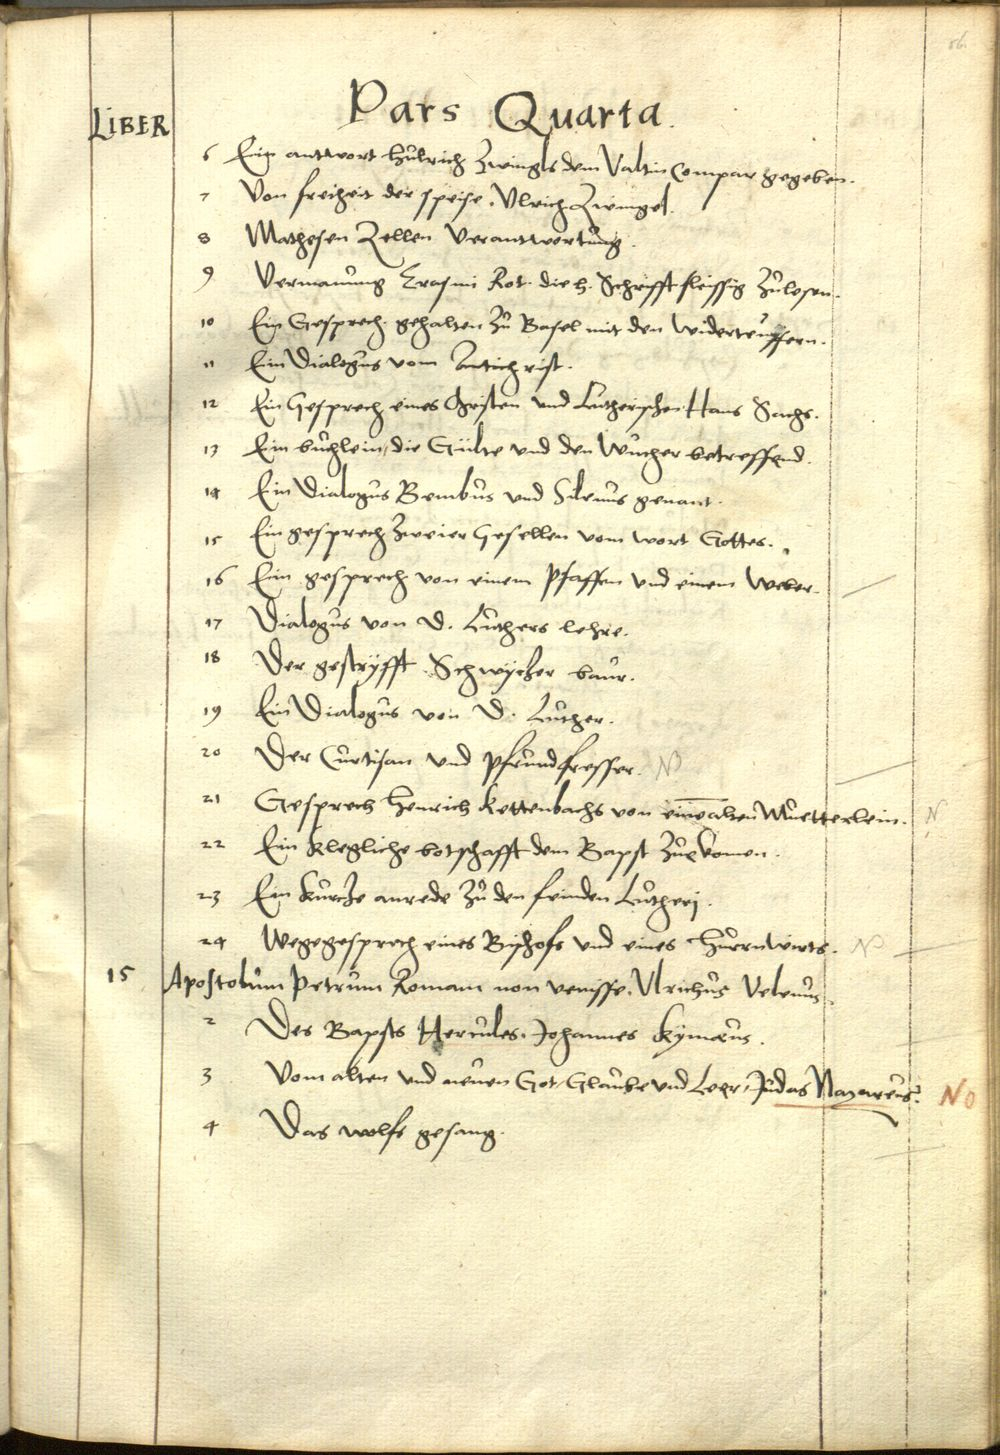 Pars Quarta.
LIBER
6 Ein antwort Hulrich Zwingls dem Valtin Compar gegeben.
7 Von freiheit der speise. Ulrich Zwingel.
8 Mathesen Zellen Verantwortung.
9 Vermanung Erasmi Rot. die h. Schrifft fleissig zulesen.
10 Ein Gesprech gehalten zu Basel mit den widerteuffern.
11 Ein Dialogus vom Antichrist.
12 Ein Gesprech eines Christen und Lutherischen Hans Sachs.
13 Ein buchlein, die Gülte und den Wucher betreffend.
14 Ein Dialogus Bembus und Silenus genant.
15 Ein gesprech zweier Gesellen vom wort Gottes.
16 Ein gesprech von einem Pfaffen und einem Weber.
17 Dialogus von D. Luthers lehre.
18 Der gestryfft Schwytzer baur.
19 Ein Dialogus von D. Luther.
20 Der Curtisan und Pfrundfresser.
21 Gesprech Henrich Kettenbachs von eine alten Muetterlein. N
22 Ein klegliche botschafft dem Bapst zukomen.
23 Ein kurtze anrede zu den feinden Lutheri.
24 Wegegesprech eines Bischofs und eines Hurnwirts. N
15 Apostolum Petrum Romam non venisse. Ulrichus Velenus.
2 Des Bapsts Hercules. Johannes Kymæus.
3 Vom alten und neuen Got, Glaube und Leer, Judas Nazareus. No
4 Das wolfs gesang.